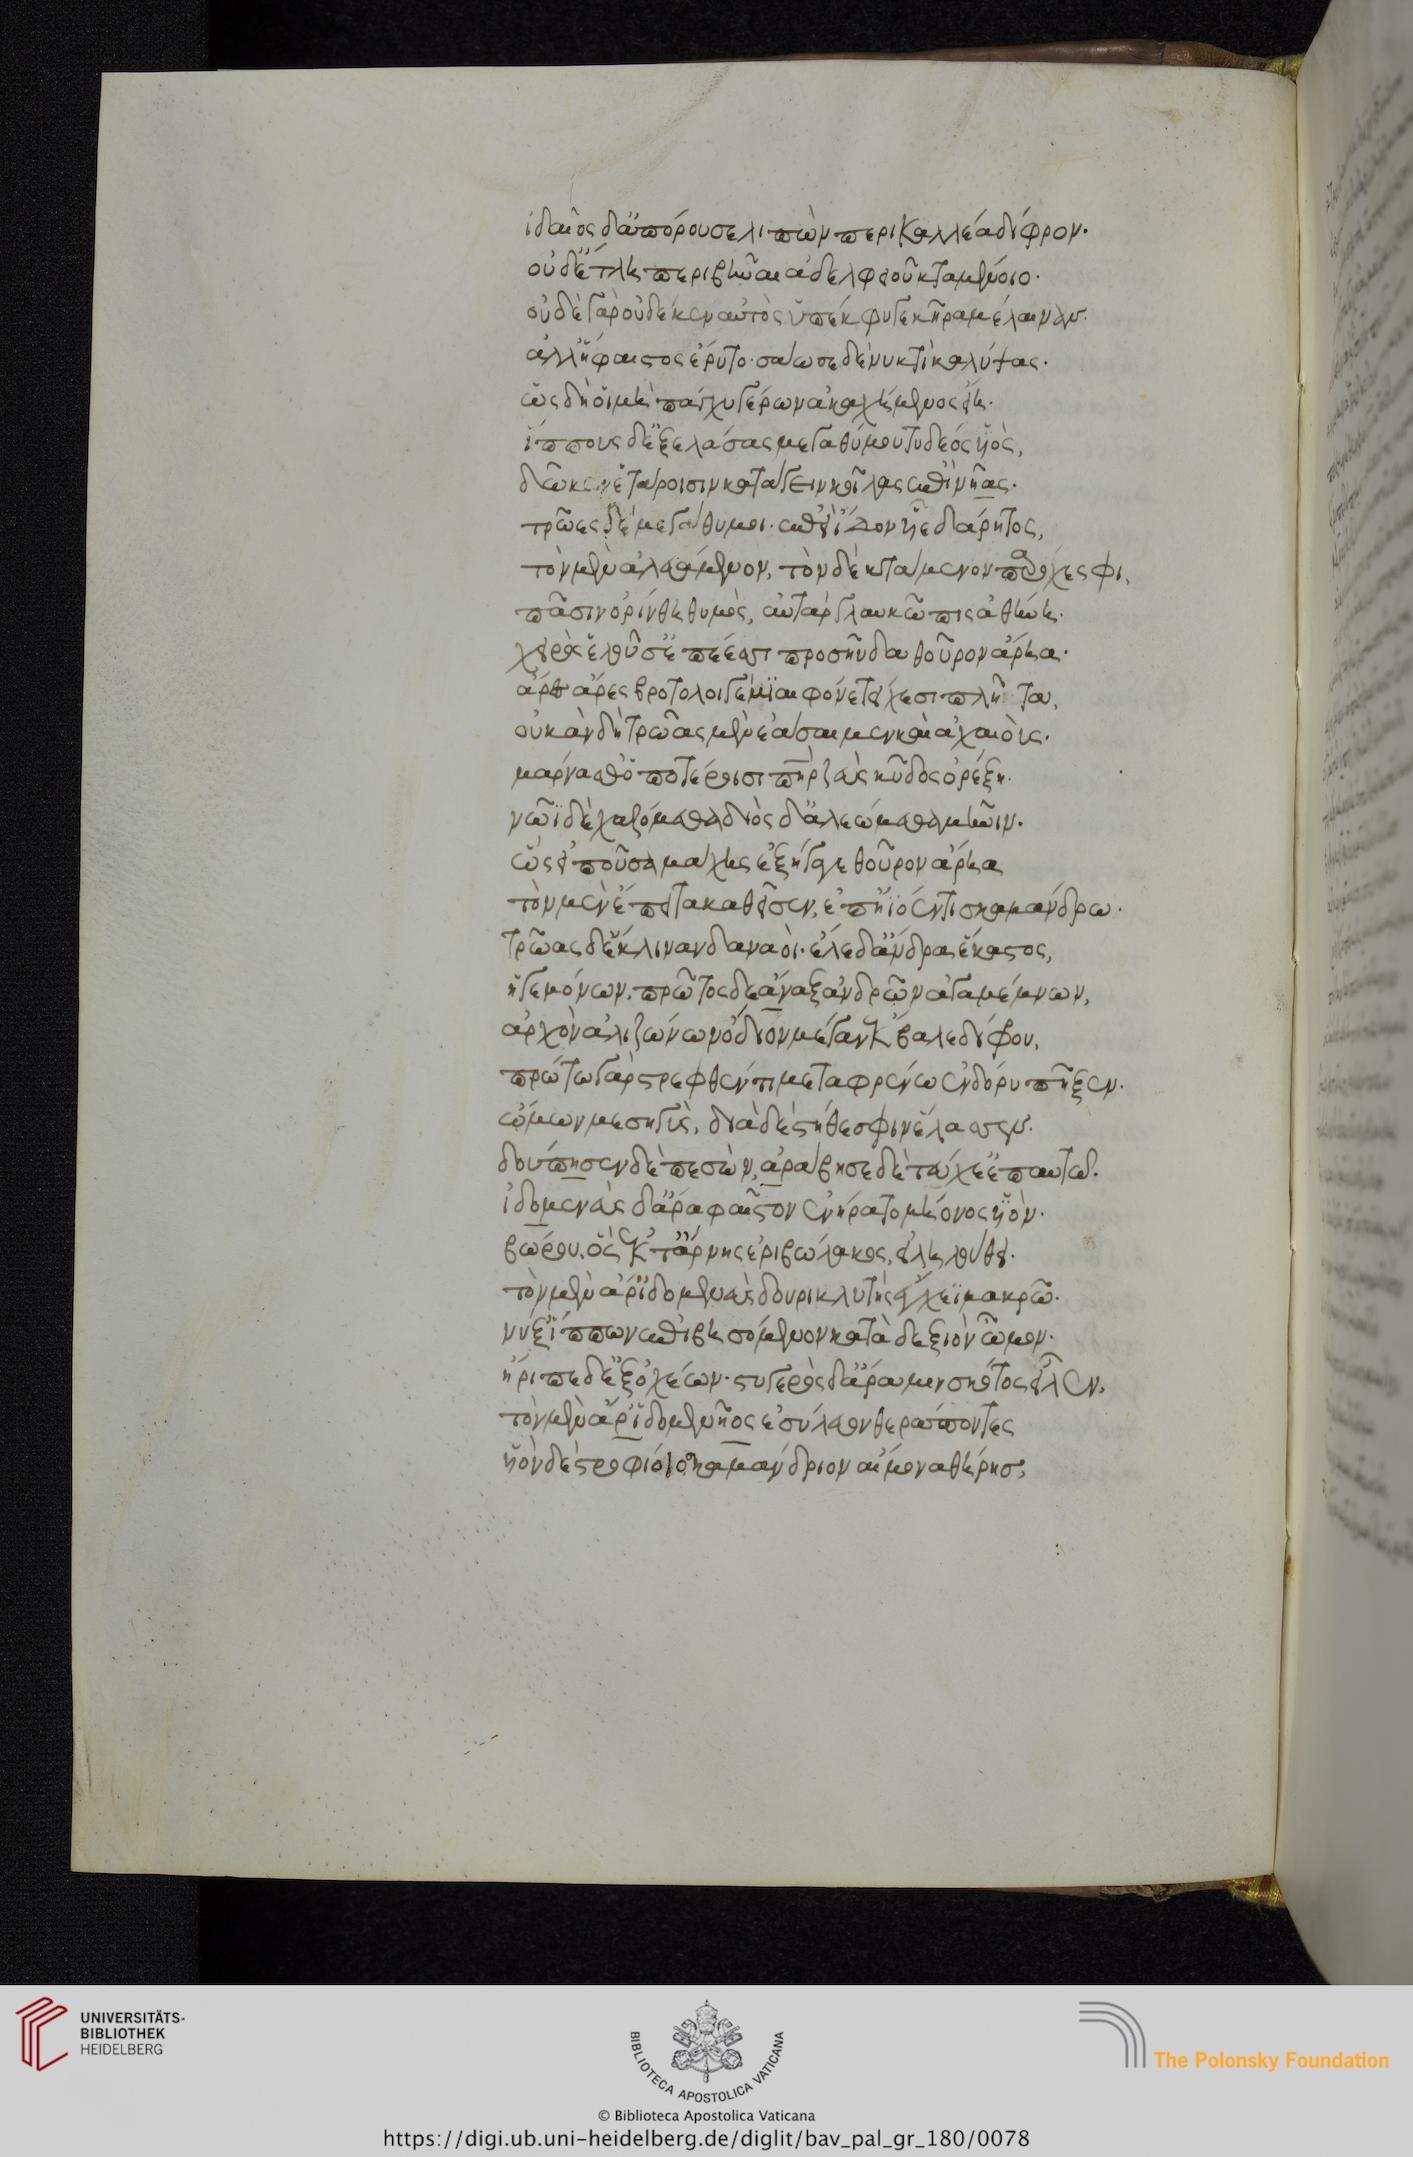 ἰδαῖος δ' ἀπόρουσε λιπὼν περικαλλέα δίφρον·
οὐδ' ἔτλη περιβῆναι ἀδελφειοῦ κταμένοιο·
οὐδὲ γὰρ οὐδέ κεν αὐτὸς ὑπέκφυγε κῆρα μέλαιναν·
ἀλλ' ἥφαιστος ἔρυτο· σάωσε δὲ νυκτὶ καλύψας·
ὣς δή οἱ μὴ πάγχυ γέρων ἀκαχήμενος εἴη·
ἵππους δ' ἐξελάσας μεγαθύμου τυδέος υἱὸς,
δῶκεν ἑταίροισιν κατάγειν κοίλας ἐπὶ νῆας·
τρῶες δὲ μεγάθυμοι· ἐπεὶ ἴδον υἷε δάρητος,
τὸν μὲν ἀλευάμενον, τὸν δὲ κτάμενον παρ' ὄχεσφι,
πᾶσιν ὀρίνθη θυμὸς, αὐτὰρ γλαυκῶπις ἀθήνη·
χειρὸς ἑλοῦσ' ἐπέεσσι προσηύδα θοῦρον ἄρηα·
ἆρες ἄρες βροτολοιγὲ μιαιφόνε τειχεσιπλῆτα,
οὐκ ἂν δὴ τρῶας μὲν ἐάσαιμεν καὶ ἀχαιοὺς·
μάρνασθ' ὁπποτέροισι πατὴρ ζεὺς κῦδος ὀρέξη·
νῶϊ δὲ χαζώμεσθα διὸς δ' ἀλεώμεθα μῆνιν·
ὣς εἰποῦσα μάχης ἐξήγαγε θοῦρον ἄρηα
τὸν μὲν ἔπειτα καθεῖσεν, ἐπ' ἠϊόεντι σκαμάνδρω·
τρῶας δ' ἔκλιναν δαναοὶ· ἕλε δ' ἄνδρα ἕκαστος,
ἡγεμόνων· πρῶτος δὲ ἄναξ ἀνδρῶν ἀγαμέμνων,
ἀρχὸν ἁλιζώνων ὀδίον μέγαν ἔκβαλε δίφρου,
πρώτω γὰρ στρεφθέντι μεταφρένω ἐν δόρυ πῆξεν·
ὤμων μεσηγὺς, διὰ δὲ στήθεσφιν ἔλασσεν·
δούπησεν δὲ πεσὼν, ἀράβησε δὲ τεύχε' ἐπ' αὐτῶ·
ἰδομενεὺς δ' ἄρα φαῖστον ἐνήρατο μηόνος υἱὸν·
βώρου, ὃς ἐκ τάρνης ἐριβώλακος, εἰληλούθει·
τὸν μὲν ἄρ' ἰδομενεὺς δουρικλυτὸς ἔγχεϊ μακρῶ·
νύξ' ἵππων ἐπιβησόμενον κατὰ δεξιὸν ὦμον·
ἤριπε δ' ἐξ ὀχέων· στυγερὸς δ' ἄρα μιν σκότος εἷλεν,
τὸν μὲν ἄρ' ἰδομενῆος ἐσύλευον θεράποντες
υἱὸν δὲ στροφίοιο σκαμάνδριον αἵμονα θήρης,
UNIVERSITÄTS-
BIBLIOTHEK
HEIDELBERG
BIBLIOTECA APOSTOLICA VATICANA
The Polonsky Foundation
© Biblioteca Apostolica Vaticana
https://digi.ub.uni-heidelberg.de/diglit/bav_pal_gr_180/0078